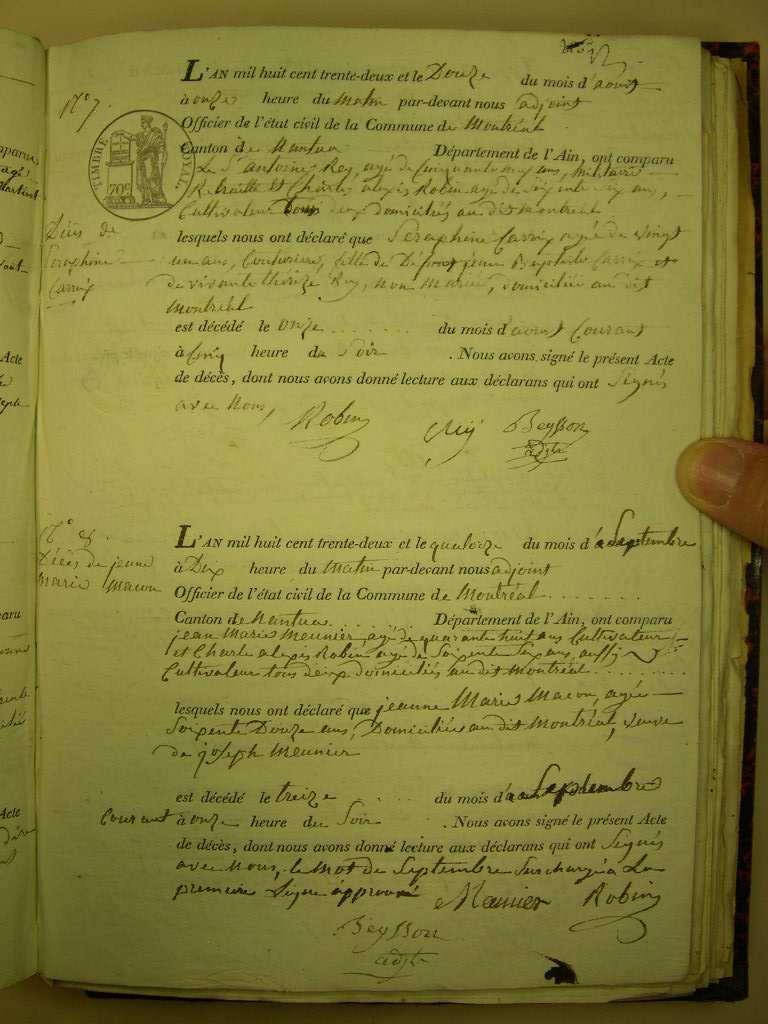 N.° 7.
TIMBRE ROYAL
70c
L'AN mil huit cent trente-deux et le Douze du mois d'aoust
à onze heure du Matin par-devant nous adjoint
Officier de l'état civil de la Commune de Montréal
Canton de Nantua Département de l'Ain, ont comparu
Le Sr antoine Rey, agé de Cinquante ans, militaire
Retraitté et Charle alexis Robin agé de Soixente Six ans,
Cultivateur tous deux domiciliés au dit Montréal
Décès de
Seraphine
Carrix
lesquels nous ont déclaré que Seraphine Carrix agée de vingt
un ans, Couturière, fille de Défunt jean Baptiste Carrix et
de vivante thérèze Rey, Non Mariée, domiciliée au dit
Montréal
est décédé le onze du mois d'aoust Courant
à Cinq heure du Soir . Nous avons signé le présent Acte
de décès, dont nous avons donné lecture aux déclarans qui ont Signés
avec Nous,
Robin Rey Beysson
adjt
N.° 8.
Décès de jeanne
Marie Macon
L'AN mil huit cent trente-deux et le quatorze du mois de Septembre
à Dix heure du Matin par-devant nous adjoint
Officier de l'état civil de la Commune de Montréal
Canton de Nantua Département de l'Ain, ont comparu
jean Marie Meunier, agé de quarante huit ans Cultivateur
et Charle alexis Robin agé de Soixente Six ans, aussi
Cultivateur tous deux domiciliés au dit Montréal
lesquels nous ont déclaré que jeanne Marie Macon, agée
Soixente Douze ans, Domiciliée au dit Montréal, veuve
de joseph Meunier
est décédé le treize du mois de Septembre
Courant à onze heure du Soir . Nous avons signé le présent Acte
de décès, dont nous avons donné lecture aux déclarans qui ont Signés
avec Nous, le Mot de Septembre Surchargé à La
premiere Ligne approuvé Meunier Robin
Beysson
adjt